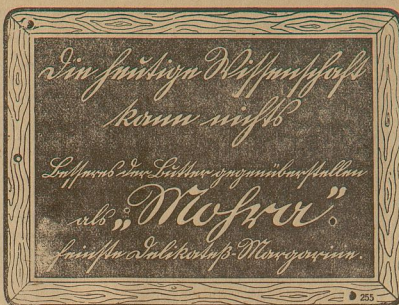 Die heutige Wissenschaft
kann nichts
Besseres der Butter gegenüberstellen
als „Mohra”.
feinste Delikateß-Margarine.
255